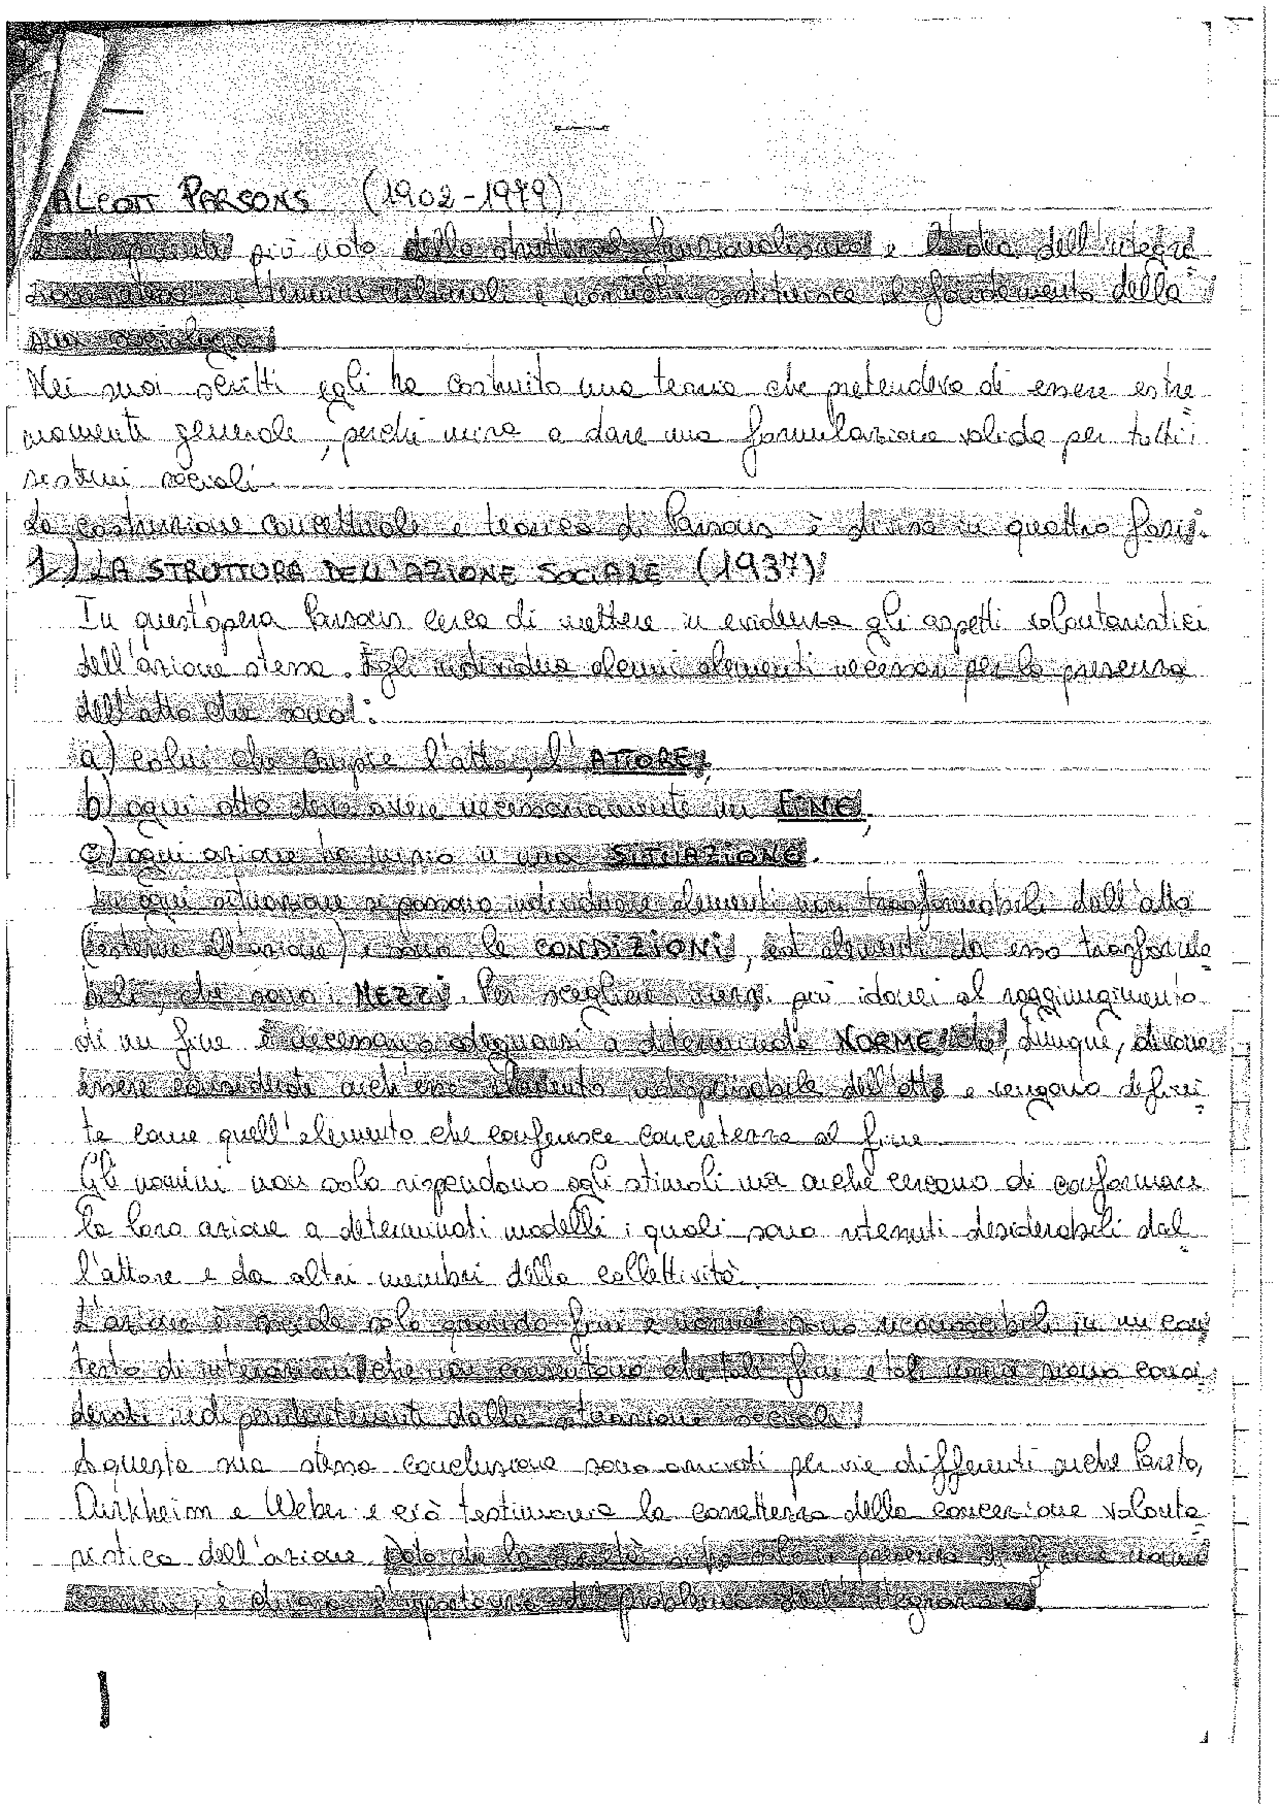 ALCOTT PARSONS (1902-1979)
più noto dello struttural funzionalismo e l'idea dell'integra
zione in termini culturali e normativi costituisce il fondamento della
sua sociologia.
Nei suoi scritti egli ha costruito una teoria che pretendeva di essere estre
mamente generale, perché mira a dare una formulazione valida per tutti i
sistemi sociali.
La costruzione concettuale e teorica di Parsons è divisa in quattro fasi:
1) LA STRUTTURA DELL'AZIONE SOCIALE (1937)
In quest'opera Parsons cerca di mettere in evidenza gli aspetti volontaristici
dell'azione stessa. Egli individua alcuni elementi necessari per la presenza
dell'atto che sono:
a) colui che compie l'atto, l'ATTORE;
b) ogni atto deve avere necessariamente un FINE;
c) ogni azione ha inizio in una SITUAZIONE.
In ogni situazione si possono individuare elementi non trasformabili dall'atto
(esterni all'azione) e sono le CONDIZIONI, ed elementi da esso trasforma
bili, che sono i MEZZI. Per scegliere i mezzi più idonei al raggiungimento
di un fine è necessario adeguarsi a determinate NORME che, dunque, devono
essere considerate anch'esse elemento indispensabile dell'atto e vengono defini
te come quell'elemento che conferisce concretezza al fine.
Gli uomini non solo rispondono agli stimoli ma anche cercano di conformare
la loro azione a determinati modelli i quali sono ritenuti desiderabili dal
l'attore e da altri membri della collettività.
L'azione è sociale solo quando fini e norme sono riconoscibili in un con
testo di interazioni che non consentono che tali fini e tali norme siano consi
derati indipendentemente dalla situazione sociale.
A questa sua stessa conclusione sono arrivati per vie differenti anche Pareto,
Durkheim e Weber e ciò testimonia la correttezza della concezione volonta
ristica dell'azione. Dato che la società si ha solo in presenza di fini e norme
comuni, è chiara l'importanza del problema dell'integrazione.